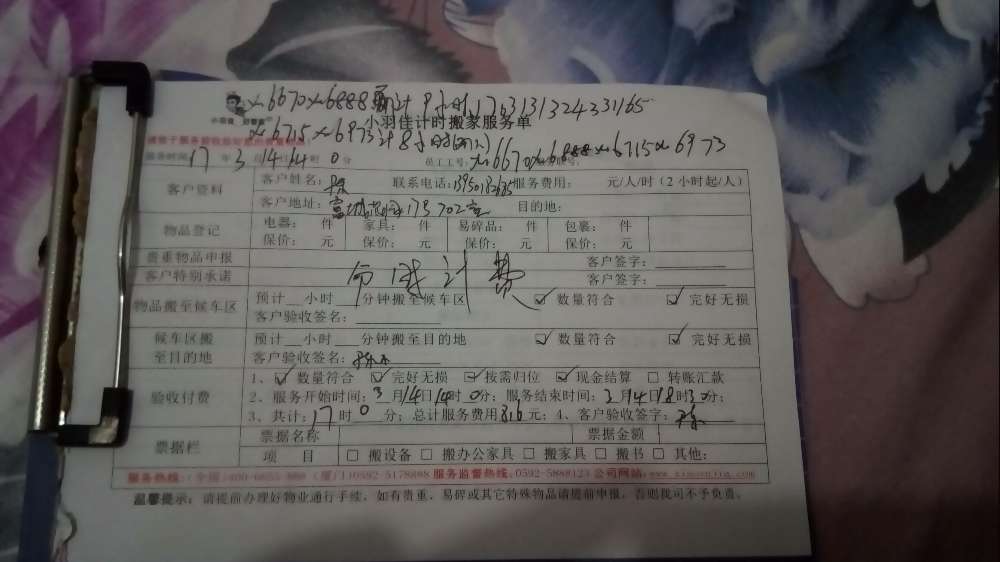 xm6670xm6888 计 小时 17631313244331165
小羽佳计时搬家服务单
xm6715xm6973计8小时
服务时间: 17年3月14 14时0分 员工工号: xm6670xm6888xm6715xm6973
客户资料 客户姓名: 陈 联系电话: 服务费用: 元/人/时(2小时起/人)
客户地址: 富 17号702室 目的地:
物品登记 电器: 件 家具: 件 易碎品: 件 包裹: 件
保价: 元 保价: 元 保价: 元 保价: 元
贵重物品申报 客户签字:
客户特别承诺 计费 客户签字:
物品搬至候车区 预计__小时__分钟搬至候车区 ☑数量符合 ☑完好无损
客户验收签名:
候车区搬至目的地 预计__小时__分钟搬至目的地 ☑数量符合 ☑完好无损
客户验收签名:
验收付费 1、☑数量符合 ☑完好无损 ☑按需归位 ☑现金结算 □转账汇款
2、服务开始时间: 3月14日14时0分; 服务结束时间: 3月14日18时30分;
3、共计: 17时0分; 总计服务费用816元; 4、客户验收签字: 陈
票据栏 票据名称 票据金额
项目 □搬设备 □搬办公家具 □搬家具 □搬书 □其他:
服务热线: 服务监督热线:0592-5888123 公司网站:
温馨提示: 请提前办理好物业通行手续,如有贵重、易碎或其它特殊物品请提前申报,否则我司不予负责。